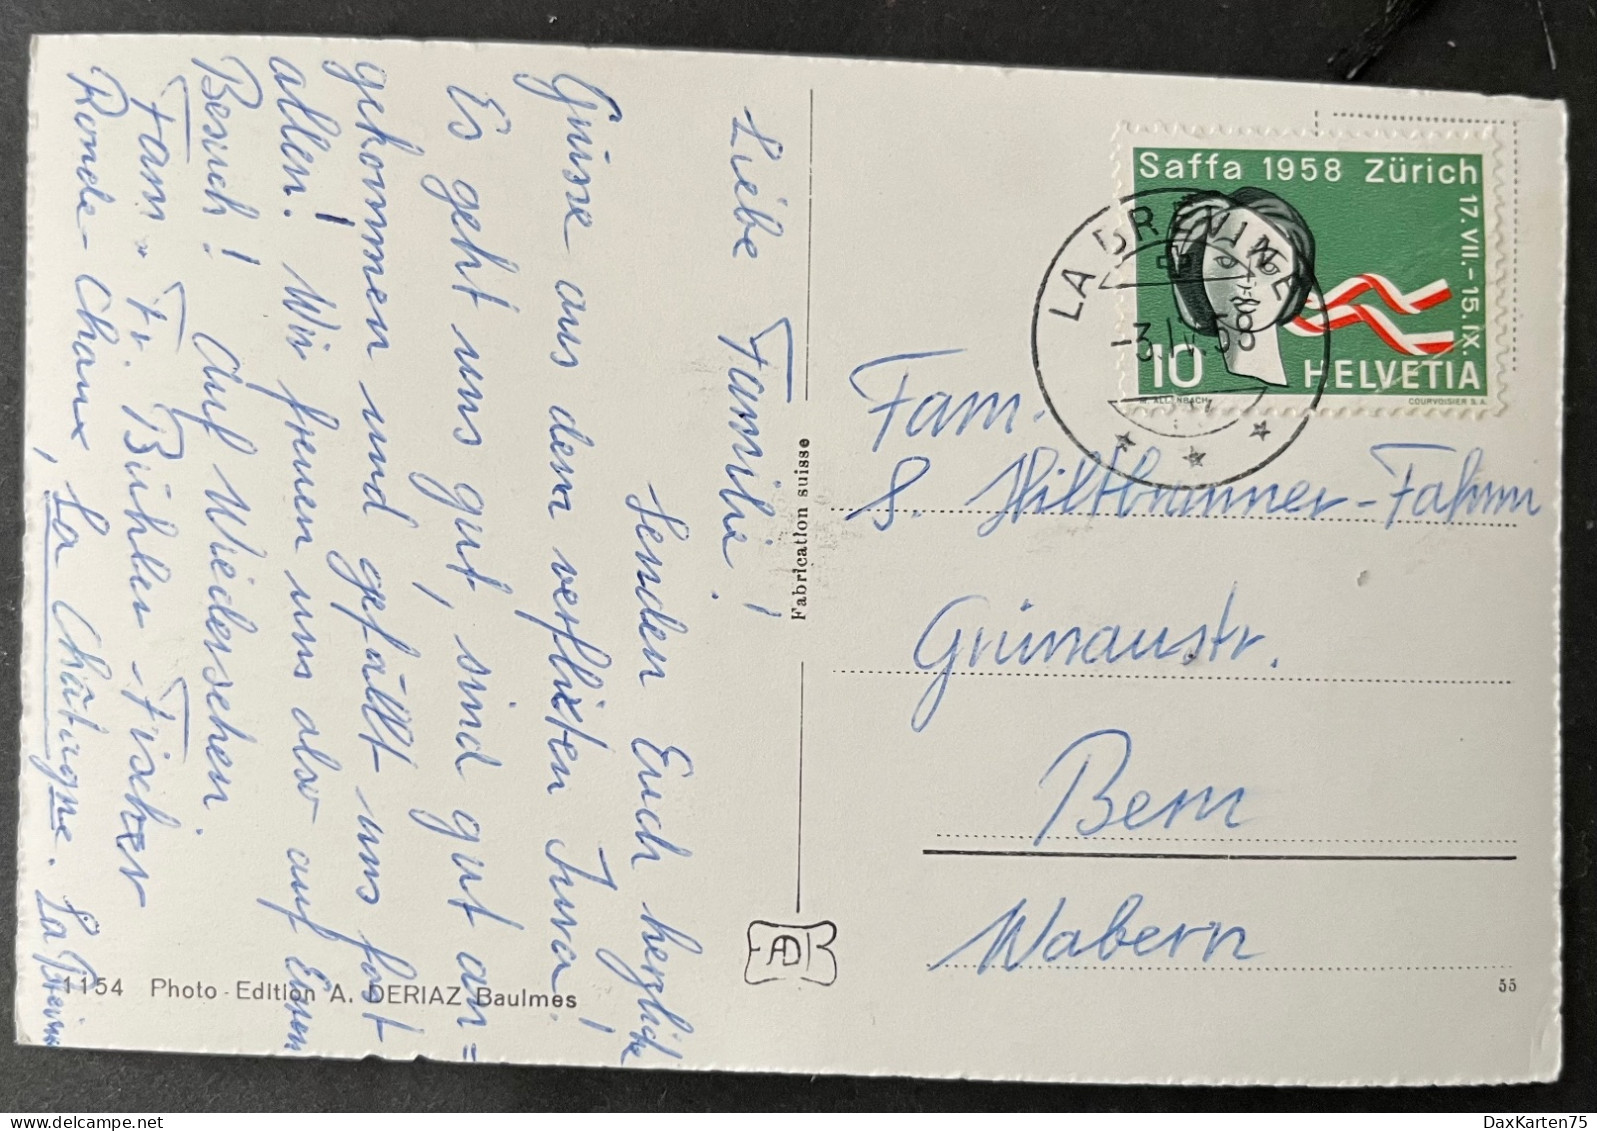 Liebe Familie!
Senden Euch herzliche
Grüsse aus dem verflixten Jura!
Es geht uns gut, sind gut an=
gekommen und gefällt uns fast
allen! Wir freuen uns also auf Euren
Besuch! Auf Wiedersehen.
Fam. Fr. Bühler-Fischer
Ronde-Chaux, La Châtagne. La Brévine
1154 Photo-Edition A. DERIAZ Baulmes
Fabrication suisse
ADB
Saffa 1958 Zürich
17.VII.-15.IX.
10
HELVETIA
W. ALLENBACH
COURVOISIER S.A.
LA BRÉVINE
-3.IV.58
Fam.
S. Hiltbrunner-Fahrni
Grünaustr.
Bern
Wabern
55
DaxKarten75